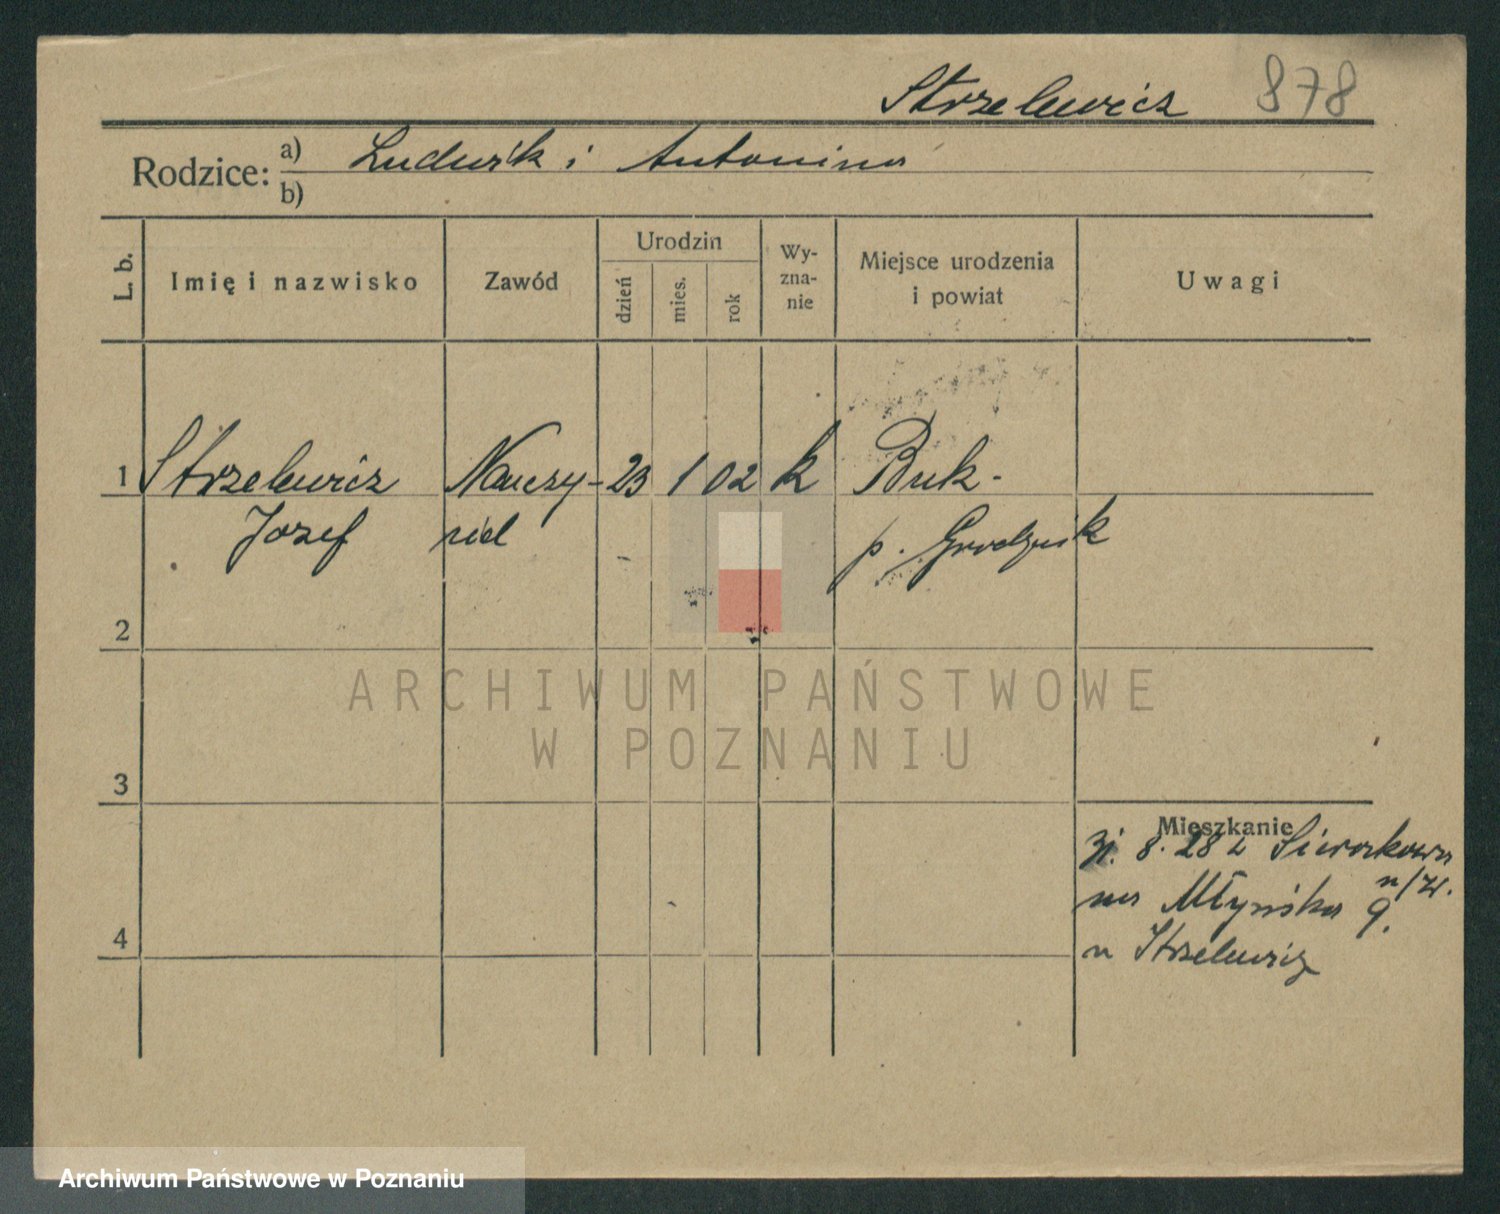 Strzelewicz 878
Rodzice: a) Ludwik i Antonina
b)
L. b. Imię i nazwisko Zawód Urodzin dzień mies. rok Wy-zna-nie Miejsce urodzenia i powiat Uwagi
1 Strzelewicz Nauczy- 23 1 02 k Buk -
Józef ciel p. Grodzisk
2
ARCHIWUM PAŃSTWOWE
W POZNANIU
3
Mieszkanie
8. 28 z
na Młyńska 9.
u Strzelewicz
4
Archiwum Państwowe w Poznaniu